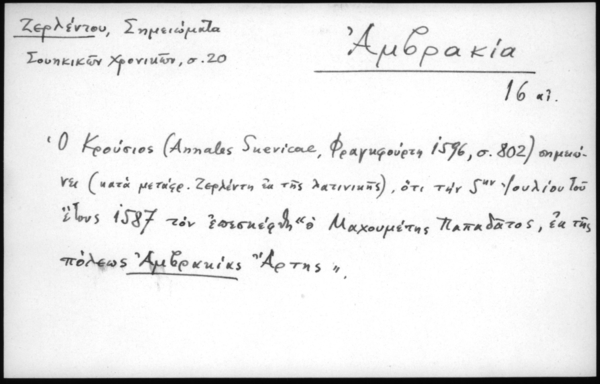 Ζερλέντου, Σημειώματα
Σουηκικῶν Χρονικῶν, σ. 20
Ἀμβρακία
16 αἰ.
Ὁ Κρούσιος (Annales Suevicae, Φραγκφούρτη 1596, σ. 802) σημειώ-
νει (κατὰ μετάφρ. Ζερλέντη ἐκ τῆς λατινικῆς), ὅτι τὴν 5ην Ἰουλίου τοῦ
ἔτους 1587 τὸν ἐπεσκέφθη «ὁ Μαχουμέτης Παπαδᾶτος, ἐκ τῆς
πόλεως Ἀμβρακίας Ἄρτης».